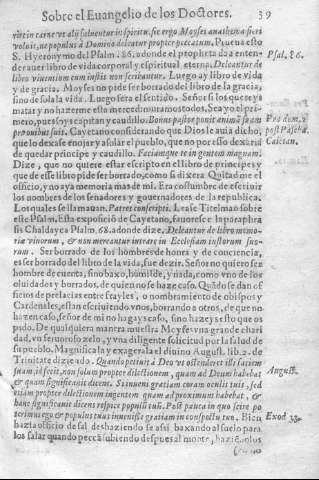 Sobre el Euangelio de los Doctores. 59
viuêt in carne vt alij saluentur in spiritu. sic ergo Moyses anathema fieri
voluit, ne populus à Domino deleatur propter peccatum. Prueua esto
S. Hyeronymo del Psalm. 86. adonde el propheta da a enten
der auer libro de vida corporal y espiritual eterna. Deleantur de
libro viuentium cum iustis non scribantur. Luego ay libro de vida
y de gracia. Moyses no pide ser borrado del libro de la gracia,
sino de sola la vida. Luego sera el sentido. Señor si los quereys
matar y no hazerme esta merced: muramos todos. Sea yo el pri-
mero, pues soy capitan y caudillo. Bonus pastor ponit animã suam
pro ouibus suis. Cayetano considerando que Dios le auia dicho,
que lo dexase enojar y asolar el pueblo, que no por esso dexaria
de quedar principe y caudillo. Faciamque te in gentem magnam.
Dize, que no quiere estar escripto en el libro de principes y
que de esse libro pide ser borrado, como si dixera Quitadme el
officio, y no aya memoria mas de mi. Era costumbre de escriuir
los nombres de los senadores y gouernadores de la republica.
Los quales se llamauan. Patres conscripti. Lease Titelman sobre
este Psalm. Esta exposició de Cayetano, fauoresce la paraphra
sis Chaldayca Psalm. 68. adonde dize. Deleantur de libro memo-
riæ viuorum, & non mereantur intrare in Ecclesiam iustorum suo-
rum. Ser borrado de los hombres de honra y de conciencia,
es ser borrado del libro de la vida, fue dezir. Señor no quiero ser
hombre de cuenta, sino baxo, humilde, y nada, como vno de los
oluidados y borrados, de quien no se haze caso. Quãdo se dan of
ficios de prelacias entre frayles, o nombramiento de obispos y
Cardenales, estan escriuiendo vnos, borrando a otros, de que no
hazen caso, señor de mi no hagays caso, sino hazeys esto que os
pido. De qualquiera mantra muestra Moyses vna grande chari
dad, vn feruoroso zelo, y vna diligente solicitud por la salud de
su pueblo. Magnificala y exagerala el diuino August. lib. 2. de
Trinitate diziendo. Quando petiuit à Deo vt ostenderet illi faciem
suam, id fecit, non solum propter dilectionem, quam ad Deum habebat
& quam significauit dicens. Si inueni gratiam coram oculis tuis, sed
etiam propter dilectionem ingentem quam ad proximum habebat, &
hanc significauit dicens respice populũ tuũ. Post pauca in quo scire po
terimus ego & populus tuus inuenisse gratiam in conspectu tuo. Bien
hazia officio de sal deshaziendo se assi baxando al suelo para
los salar quando pecca subiendo despues al monte, haziẽdolos
Psal. 86.
post Pascha.
Caietan.
August.
Exod 33.